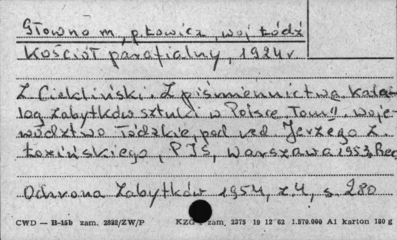 Głowno m, p. Łowicz, woj Łódź
Kościół parafialny, 1924 r
Z. Ciekliński. Z piśmiennictwa. Kata-
log Zabytków Sztuki w Polsce Tom II. Woje-
wództwo Łódzkie, pod red Jerzego Z.
Łozińskiego, PIS, Warszawa 1953, Rec
Ochrona Zabytków 1954, z 4, s. 280
CWD — B-15b zam. 2838/ZW/P KZG zam. 2375 19 12 62 1.570.000 A1 karton 180 g